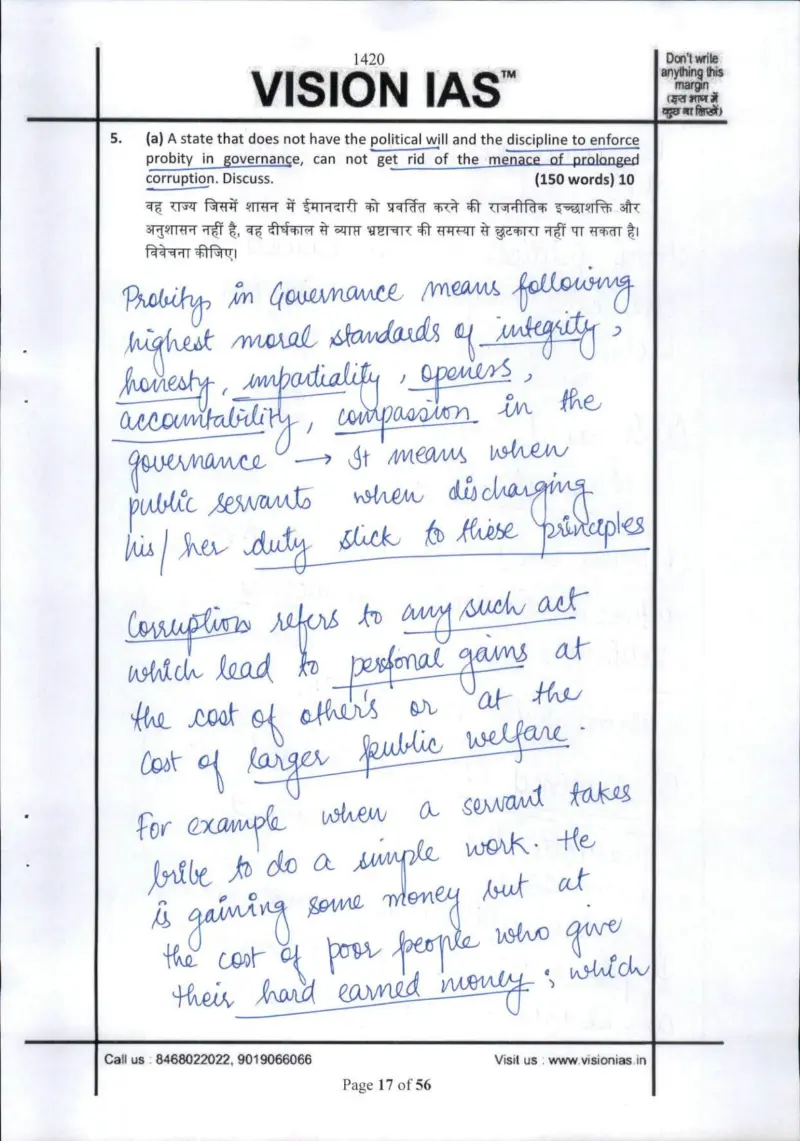 1420
VISION IAS™
Don't write
anything this
margin
(इस भाग में
कुछ ना लिखें)
5. (a) A state that does not have the political will and the discipline to enforce
probity in governance, can not get rid of the menace of prolonged
corruption. Discuss. (150 words) 10
वह राज्य जिसमें शासन में ईमानदारी को प्रवर्तित करने की राजनीतिक इच्छाशक्ति और
अनुशासन नहीं है, वह दीर्घकाल से व्याप्त भ्रष्टाचार की समस्या से छुटकारा नहीं पा सकता है।
विवेचना कीजिए।
Probity in Governance means following
highest moral standards of integrity,
honesty, impartiality, openers,
accountability, compassion in the
governance → It means when
public servants when discharging
his/her duty stick to these principles
Corruption refers to any such act
which lead to personal gains at
the cost of other's or at the
cost of larger public welfare.
For example when a servant takes
bribe to do a simple work. He
is gaining some money but at
the cost of poor people who give
their hard earned money; which
Call us : 8468022022, 9019066066
Visit us : www.visionias.in
Page 17 of 56